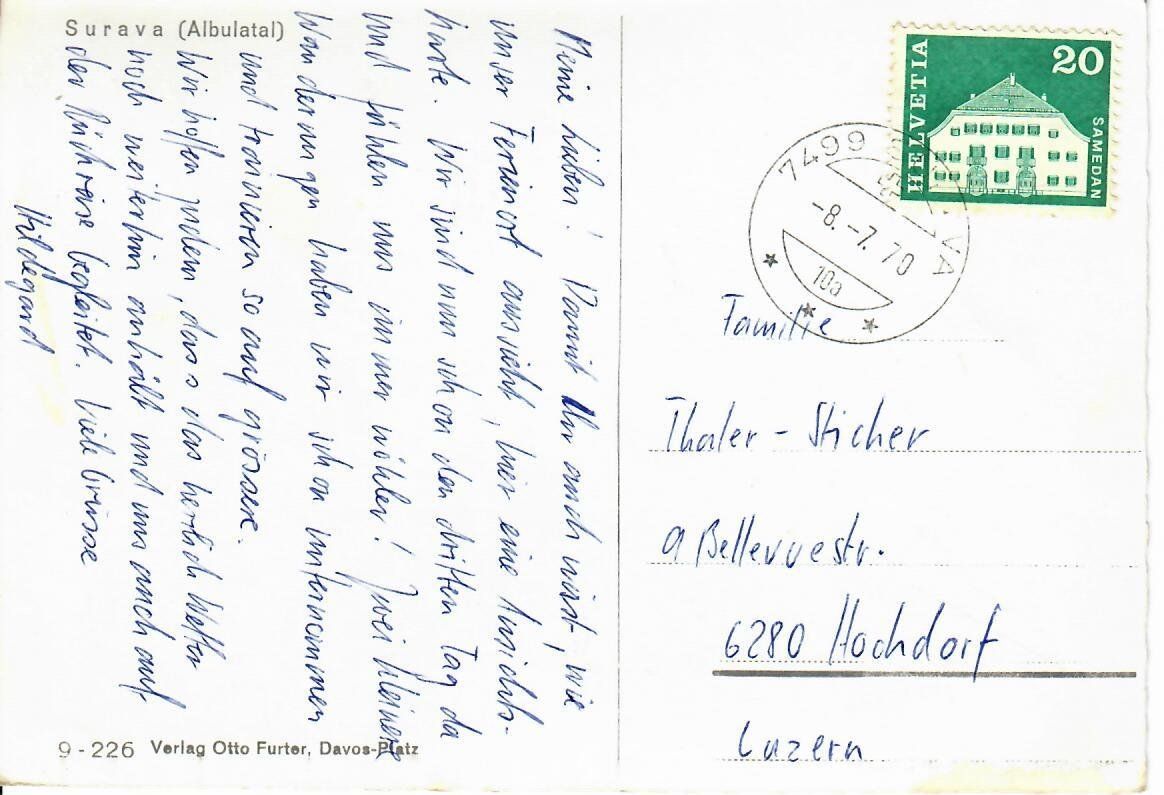 Surava (Albulatal)
Meine Lieben! Damit Ihr auch wisst, wie
unser Ferienort aussieht, hier eine Ansichts-
karte. Wir sind nun schon den dritten Tag da
und fühlen uns immer wöhler! Zwei kleinere
Wanderungen haben wir schon unternommen
und trainieren so auf grössere.
Wir hoffen zudem, dass das herrlich Wetter
noch weiterhin anhält und uns auch auf
der Rückreise begleitet. Viele Grüsse
Hildegard
9-226 Verlag Otto Furter, Davos-Platz
HELVETIA
20
SAMEDAN
7499
-8.-7.70
10a
Familie
Thaler-Sticher
a Bellevuestr.
6280 Hochdorf
Luzern